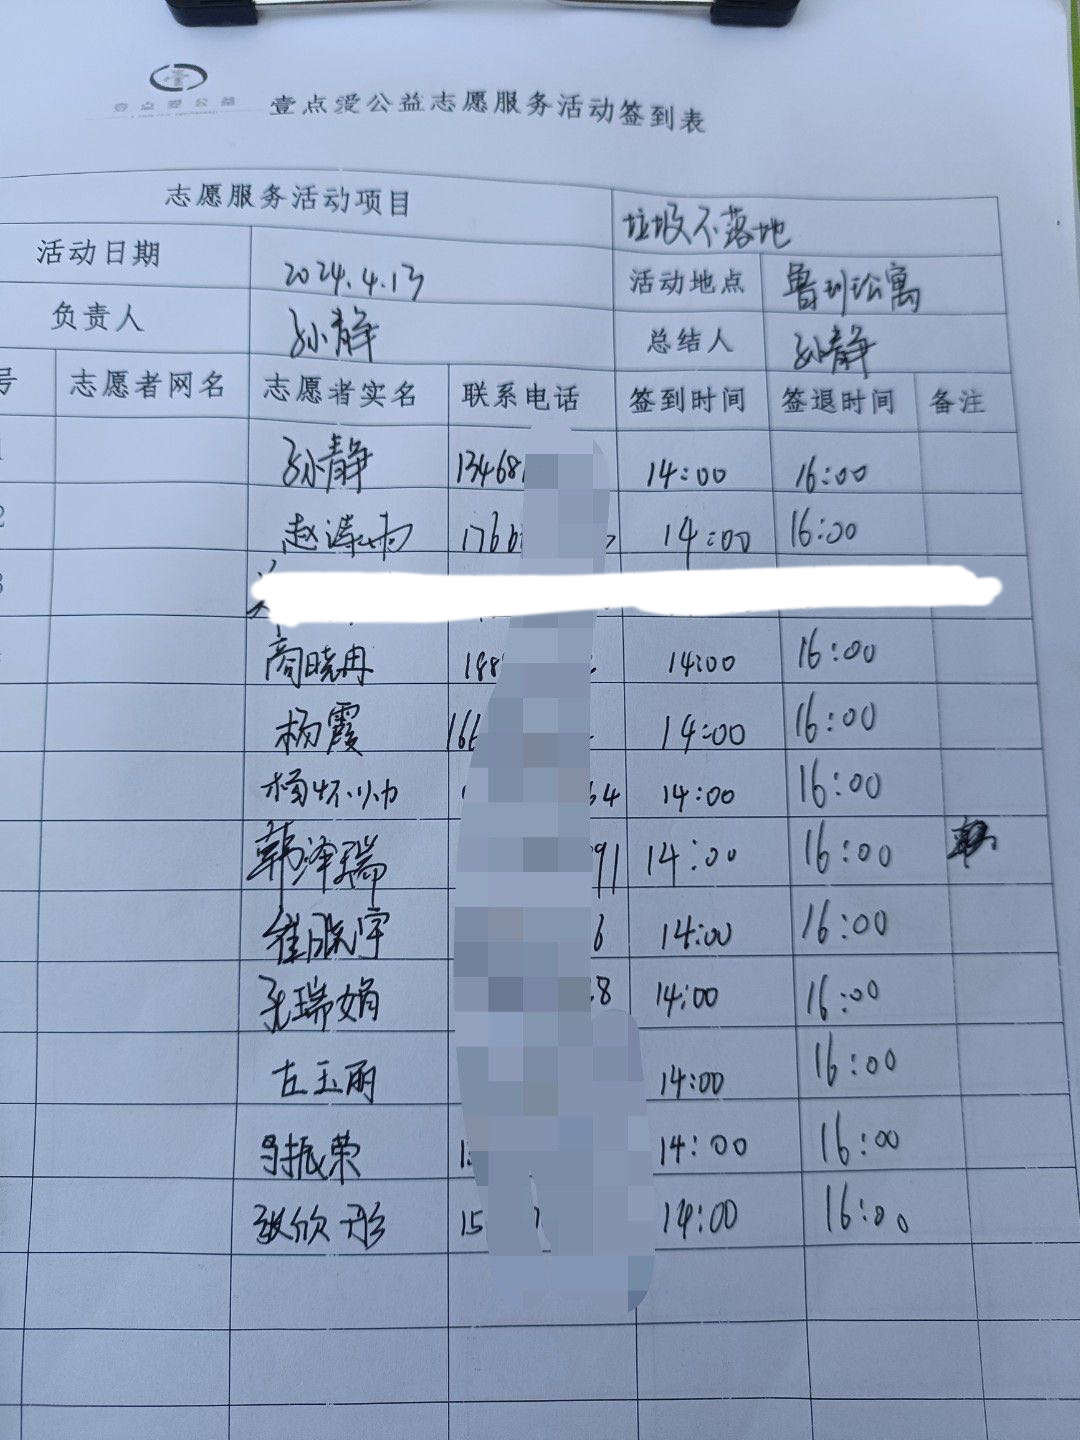 壹点爱公益
壹点爱公益志愿服务活动签到表
志愿服务活动项目 垃圾不落地
活动日期 2024.4.13 活动地点 鲁班公寓
负责人 孙静 总结人 孙静
号 志愿者网名 志愿者实名 联系电话 签到时间 签退时间 备注
1 孙静 13468 14:00 16:00
2 赵涛雨 176 14:00 16:00
3
商晓冉 188 14:00 16:00
杨霞 166 14:00 16:00
杨怀帅 64 14:00 16:00
韩泽瑞 91 14:00 16:00
崔晓宇 6 14:00 16:00
张瑞娟 8 14:00 16:00
左玉丽 14:00 16:00
马振荣 1 14:00 16:00
欣彤 15 14:00 16:00